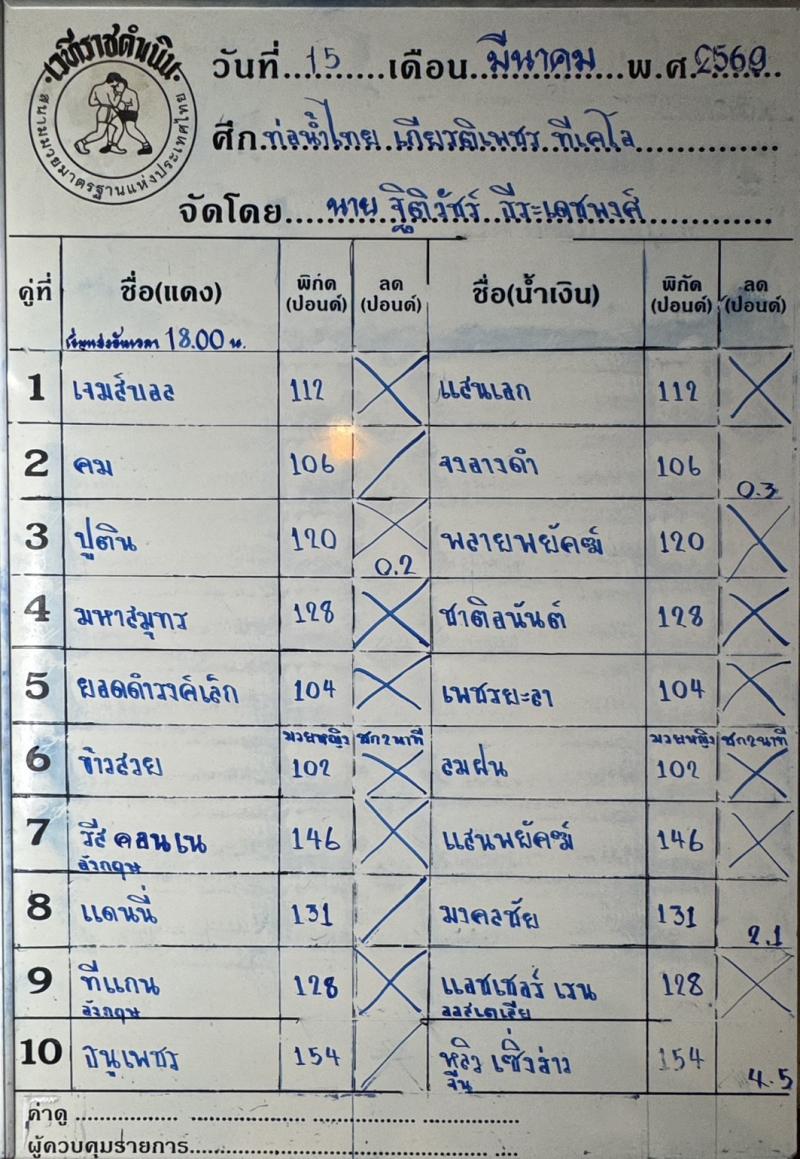 เวทีราชดำเนิน
สนามมวยมาตรฐานแห่งประเทศไทย
วันที่...15...เดือน...มีนาคม...พ.ศ.2569...
ศึก.ท่อน้ำไทย เกียรติเพชร ทีเคโอ...
จัดโดย...นาย ฐิติวัชร์ ธีระเดชพงศ์...
คู่ที่ ชื่อ(แดง) พิกัด (ปอนด์) ลด (ปอนด์) ชื่อ(น้ำเงิน) พิกัด (ปอนด์) ลด (ปอนด์)
18.00 น.
1 เจมส์บอล 112 แสนเอก 112
2 คม 106 จงอางดำ 106 0.3
3 ปูติน 120 0.2 พลายพยัคฆ์ 120
4 มหาสมุทร 128 ชาติอนันต์ 128
5 ยอดดำรงค์เล็ก 104 เพชรยะลา 104
มวยหญิง ชก2นาที มวยหญิง ชก2นาที
6 ข้าวสวย 102 ลมฝน 102
7 รีส คอนเน 146 แสนพยัคฆ์ 146
อังกฤษ
8 แดนนี่ 131 มงคลชัย 131 2.1
9 ทีแกน 128 แอชเชอร์ เรน 128
อังกฤษ ออสเตเลีย
10 ธนูเพชร 154 หลิว เซิ่งร่าว 154 4.5
จีน
ค่าดู ...
ผู้ควบคุมรายการ...